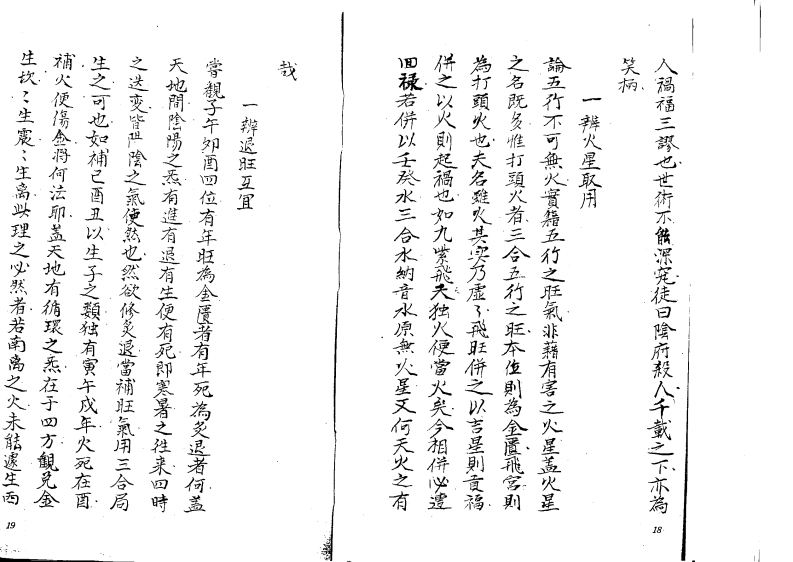 人禍福三謬也世術不能深究徒曰陰府殺人千載之下亦為
笑柄
一辨火星取用
論五行不可無火實籍五行之旺氣非藉有害之火星蓋火星
之名既多惟打頭火者三合五行之旺本位則為金匱飛宮則
為打頭火也夫名雖火其实乃虛了飛旺併之以吉星則貢福
併之以火則起禍也如九紫飛天独火便當火矣今相併必遭
回禄若併以壬癸水三合水納音水原無火星又何天火之有
18
哉
一辨退旺互宜
嘗觀子午夘酉四位有年旺為金匱者有年死為灸退者何蓋
天地間陰陽之炁有進有退有生便有死即寒暑之往来四時
之迭変皆阳陰之氣使然也然欲修灸退當補旺氣用三合局
生之可也如補巳酉丑以生子之類独有寅午戌年火死在酉
補火便傷金将何法耶蓋天地有循環之炁在于四方觀兑金
生坎〻生震〻生離此理之必然者若南离之火未能遽生西
19